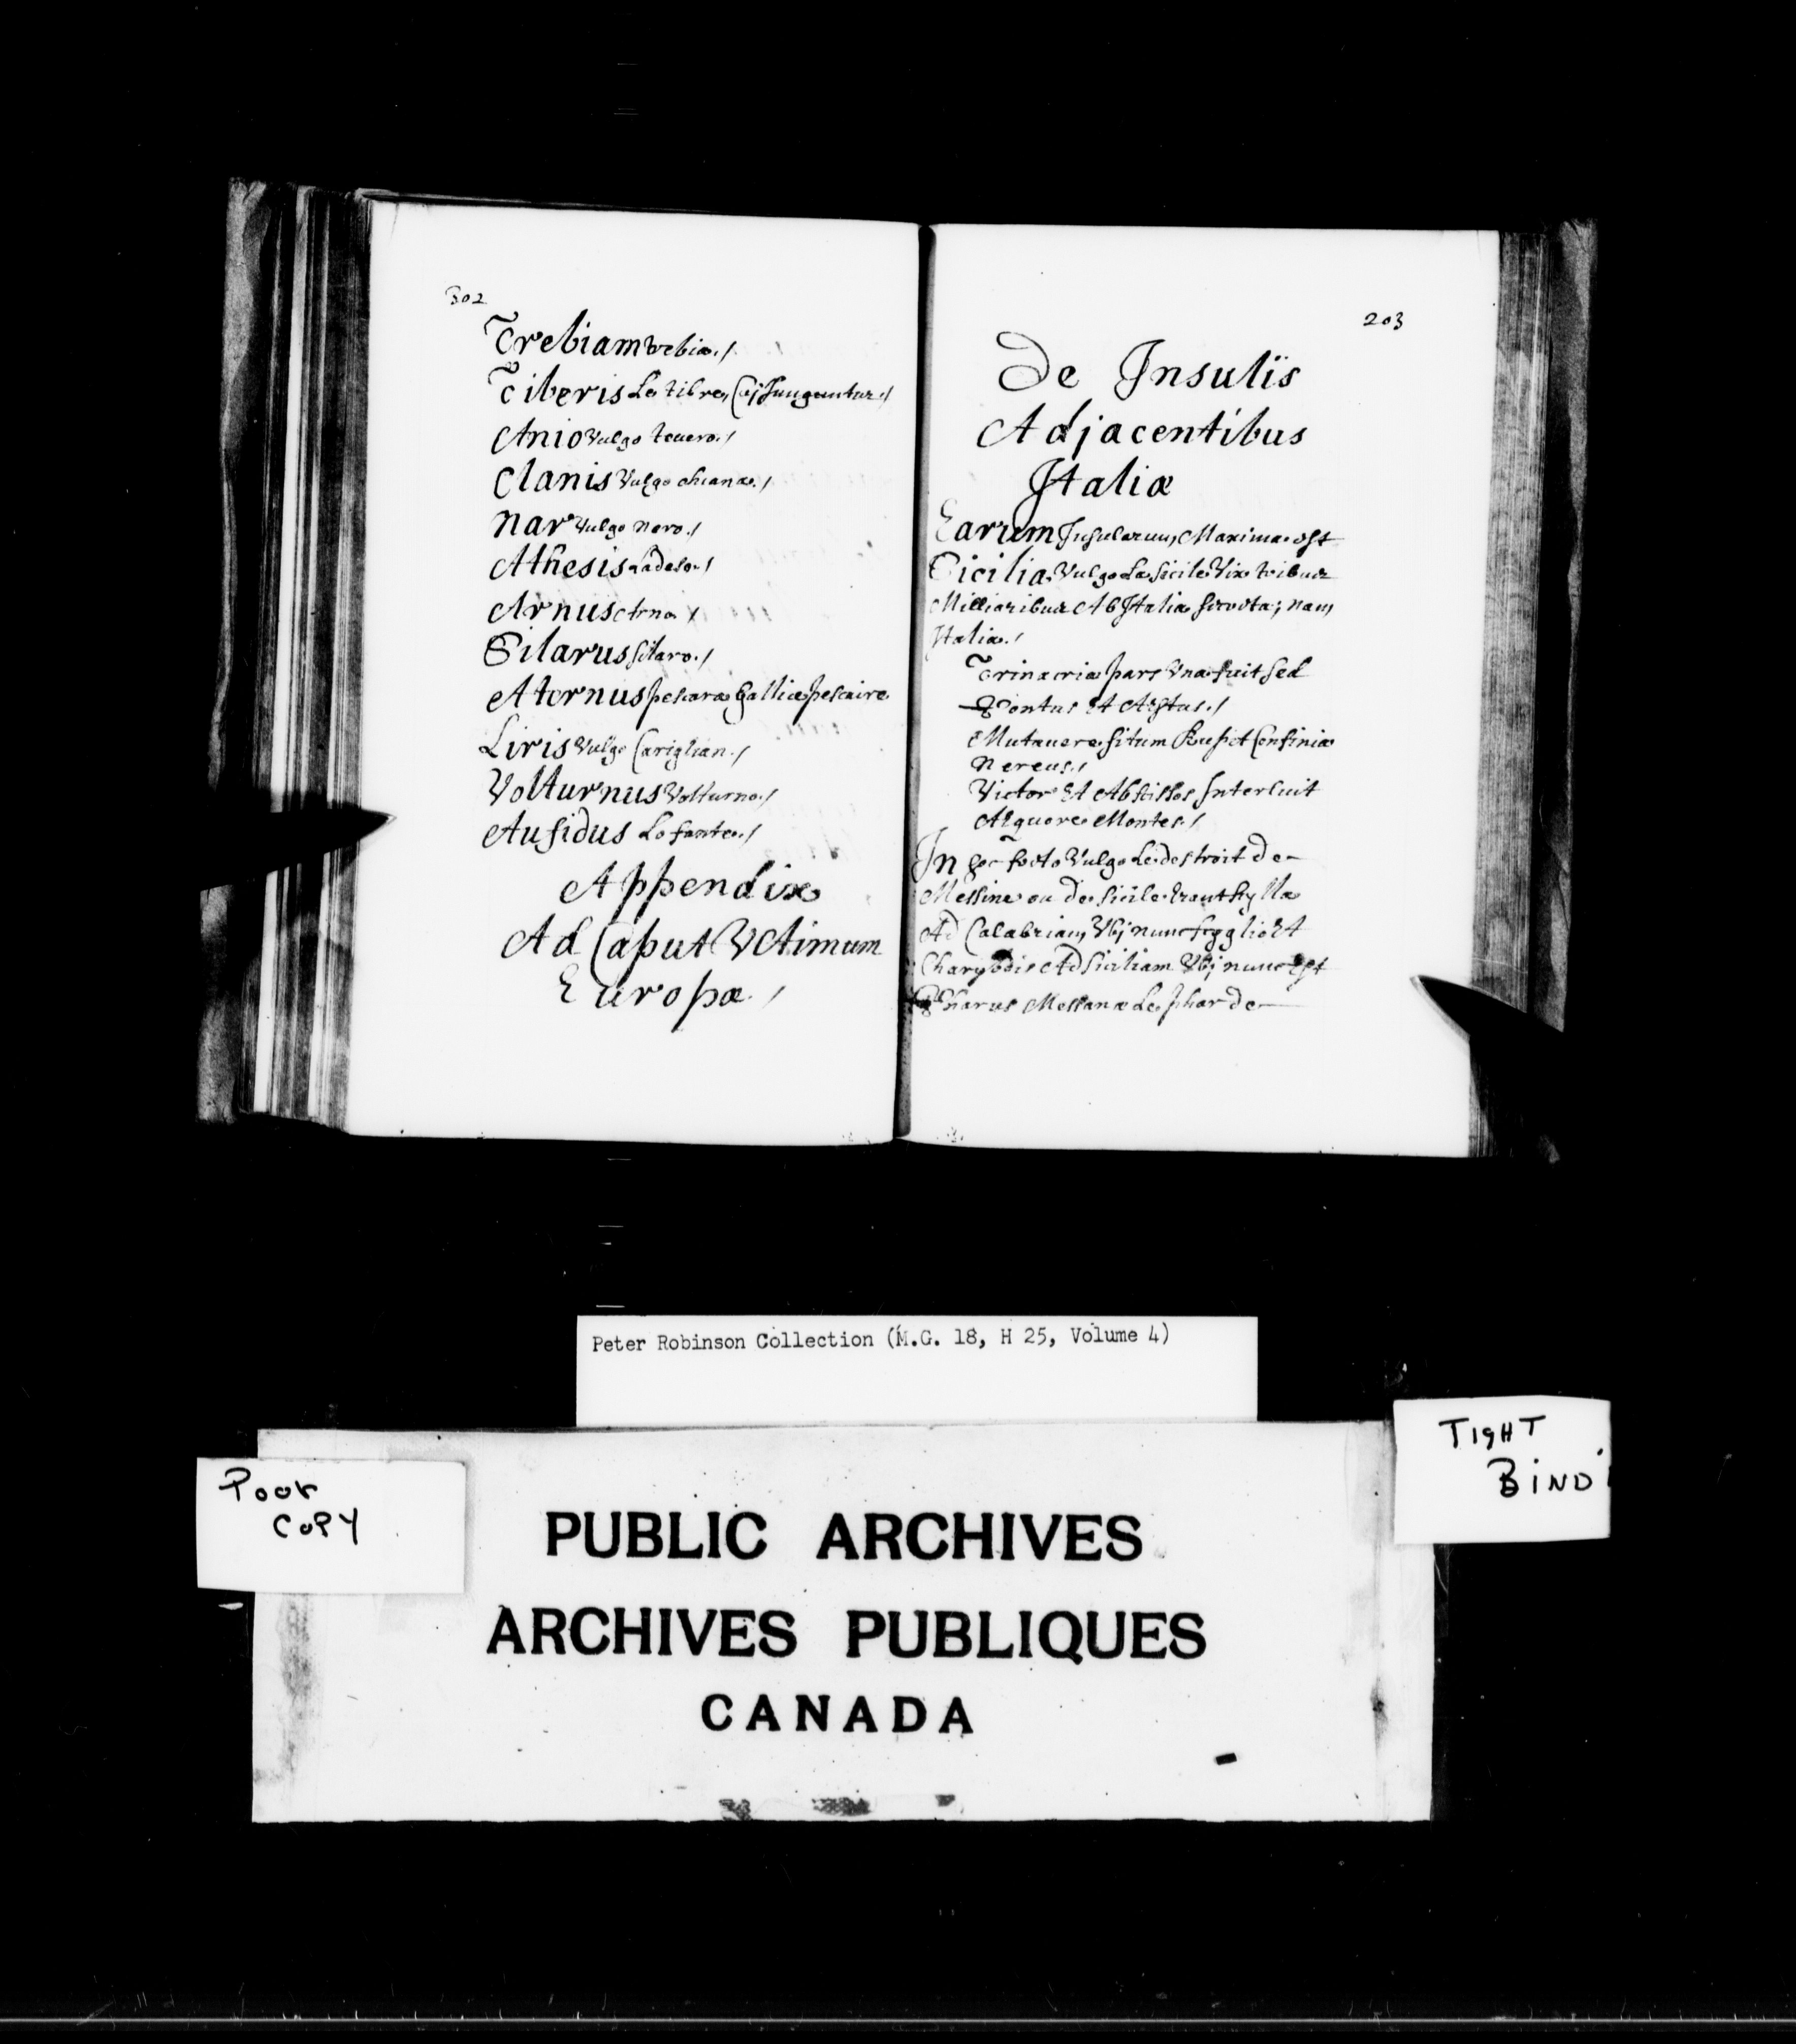 302
Trebiam trebia./
Tiberis Le tibre, Cuj Junguntur./
Anio Vulgo teuero./
Clanis Vulgo chiana./
Nar Vulgo Nero./
Athesis Ladese./
Arnus Arno /
Silarus silaro./
Aternus pescara Gallice pescaire
Liris Vulgo Cariglian./
Volturnus Volturno./
Aufidus Lofante./
Appendix
Ad Caput Vltimum
Europæ./
203
De Insulis
Adjacentibus
Italiæ
Earum Insularum, Maxima est
Sicilia Vulgo La sicile Vix tribus
Milliaribus Ab Italia; nam
Italiæ./
Trinacria pars Vna fuit sed
Pontus Et Æstus./
Mutauere situm Rupit Confinia
Nereus./
Victor Et Abscissos Interluit
Æquore Montes./
In Vulgo Le destroit de
Messine ou de sicile
Ad Calabriam Vbj nunc Et
Charybdis Ad Siciliam Vbj nunc Est
Pharus Messanæ Le phar de
Peter Robinson Collection (M.G. 18, H 25, Volume 4)
Poor
Copy
TigHT
BiND
PUBLIC ARCHIVES
ARCHIVES PUBLIQUES
CANADA